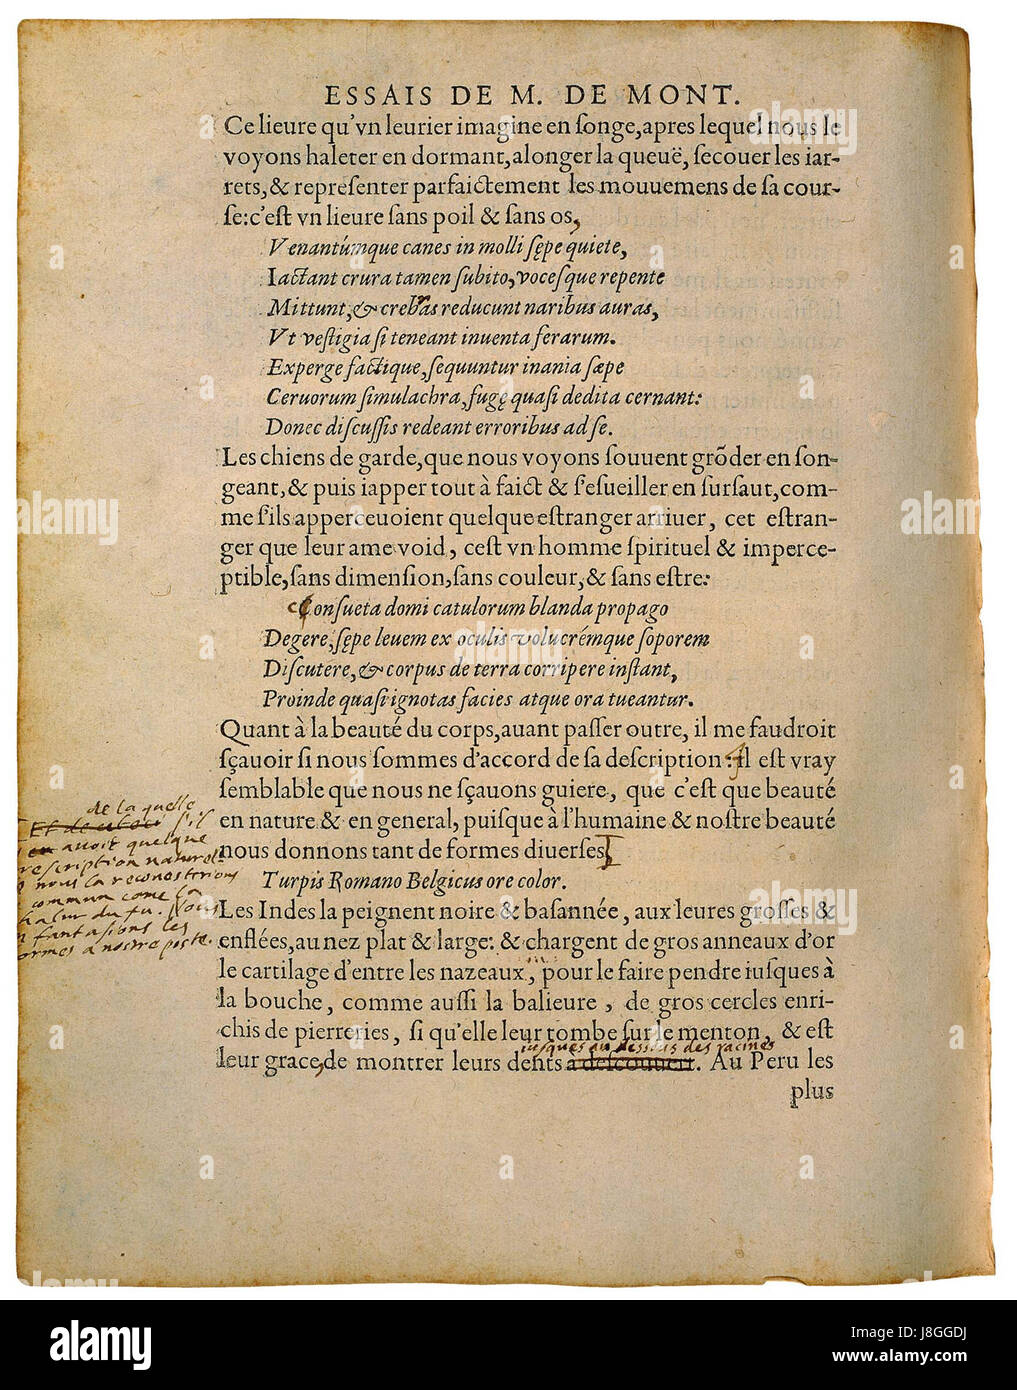 ESSAIS DE M. DE MONT.
Ce lieure qu'vn leurier imagine en ſonge,apres lequel nous le
voyons haleter en dormant,alonger la queuë, ſecouer les iar-
rets,& repreſenter parfaictement les mouuemens de ſa cour-
ſe:c'eſt vn lieure ſans poil & ſans os,
Venantúmque canes in molli ſępe quiete,
Iactant crura tamen ſubito,voceſque repente
Mittunt,& crebras reducunt naribus auras,
Vt veſtigia ſi teneant inuenta ferarum.
Experge factique,ſequuntur inania ſæpe
Ceruorum ſimulachra,fugę quaſi dedita cernant:
Donec diſcuſſis redeant erroribus ad ſe.
Les chiens de garde,que nous voyons ſouuent grõder en ſon-
geant,& puis iapper tout à faict & ſ'eſueiller en ſurſaut,com-
me ſ'ils apperceuoient quelque eſtranger arriuer, cet eſtran-
ger que leur ame void, ceſt vn homme ſpirituel & imperce-
ptible,ſans dimenſion,ſans couleur,& ſans eſtre:
Conſueta domi catulorum blanda propago
Degere,ſępe leuem ex oculis volucrémque ſoporem
Diſcutere,& corpus de terra corripere inſtant,
Proinde quaſi ignotas facies atque ora tueantur.
Quant à la beauté du corps,auant paſſer outre, il me faudroit
ſçauoir ſi nous ſommes d'accord de ſa deſcription : il eſt vray
ſemblable que nous ne ſçauons guiere, que c'eſt que beauté
en nature & en general, puiſque à l'humaine & noſtre beauté
nous donnons tant de formes diuerſes
de la quelle
s'il
en auoit quelque
rescription naturel
nous la reconoistrions
commun come la
chalur du fu. Nous
fantasions les
ormes a nostre poste.
Turpis Romano Belgicus ore color.
Les Indes la peignent noire & baſannée, aux leures groſſes &
enflées,au nez plat & large: & chargent de gros anneaux d'or
le cartilage d'entre les nazeaux, pour le faire pendre iuſques à
la bouche, comme auſſi la balieure , de gros cercles enri-
chis de pierreries, ſi qu'elle leur tombe ſur le menton, & eſt
iusques au dessus des racines
leur grace,de montrer leurs dents a deſcouuert. Au Peru les
plus
alamy
Image ID: J8GGDJ
www.alamy.com